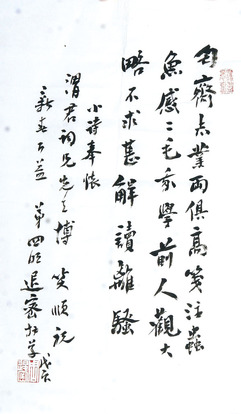 齋志業兩俱高箋注蟲
魚感二毛我學前人觀大
略不求甚解讀離騷
小詩奉懷
渭君詞兄先生博笑順祝
新春 弟四明退密拙草